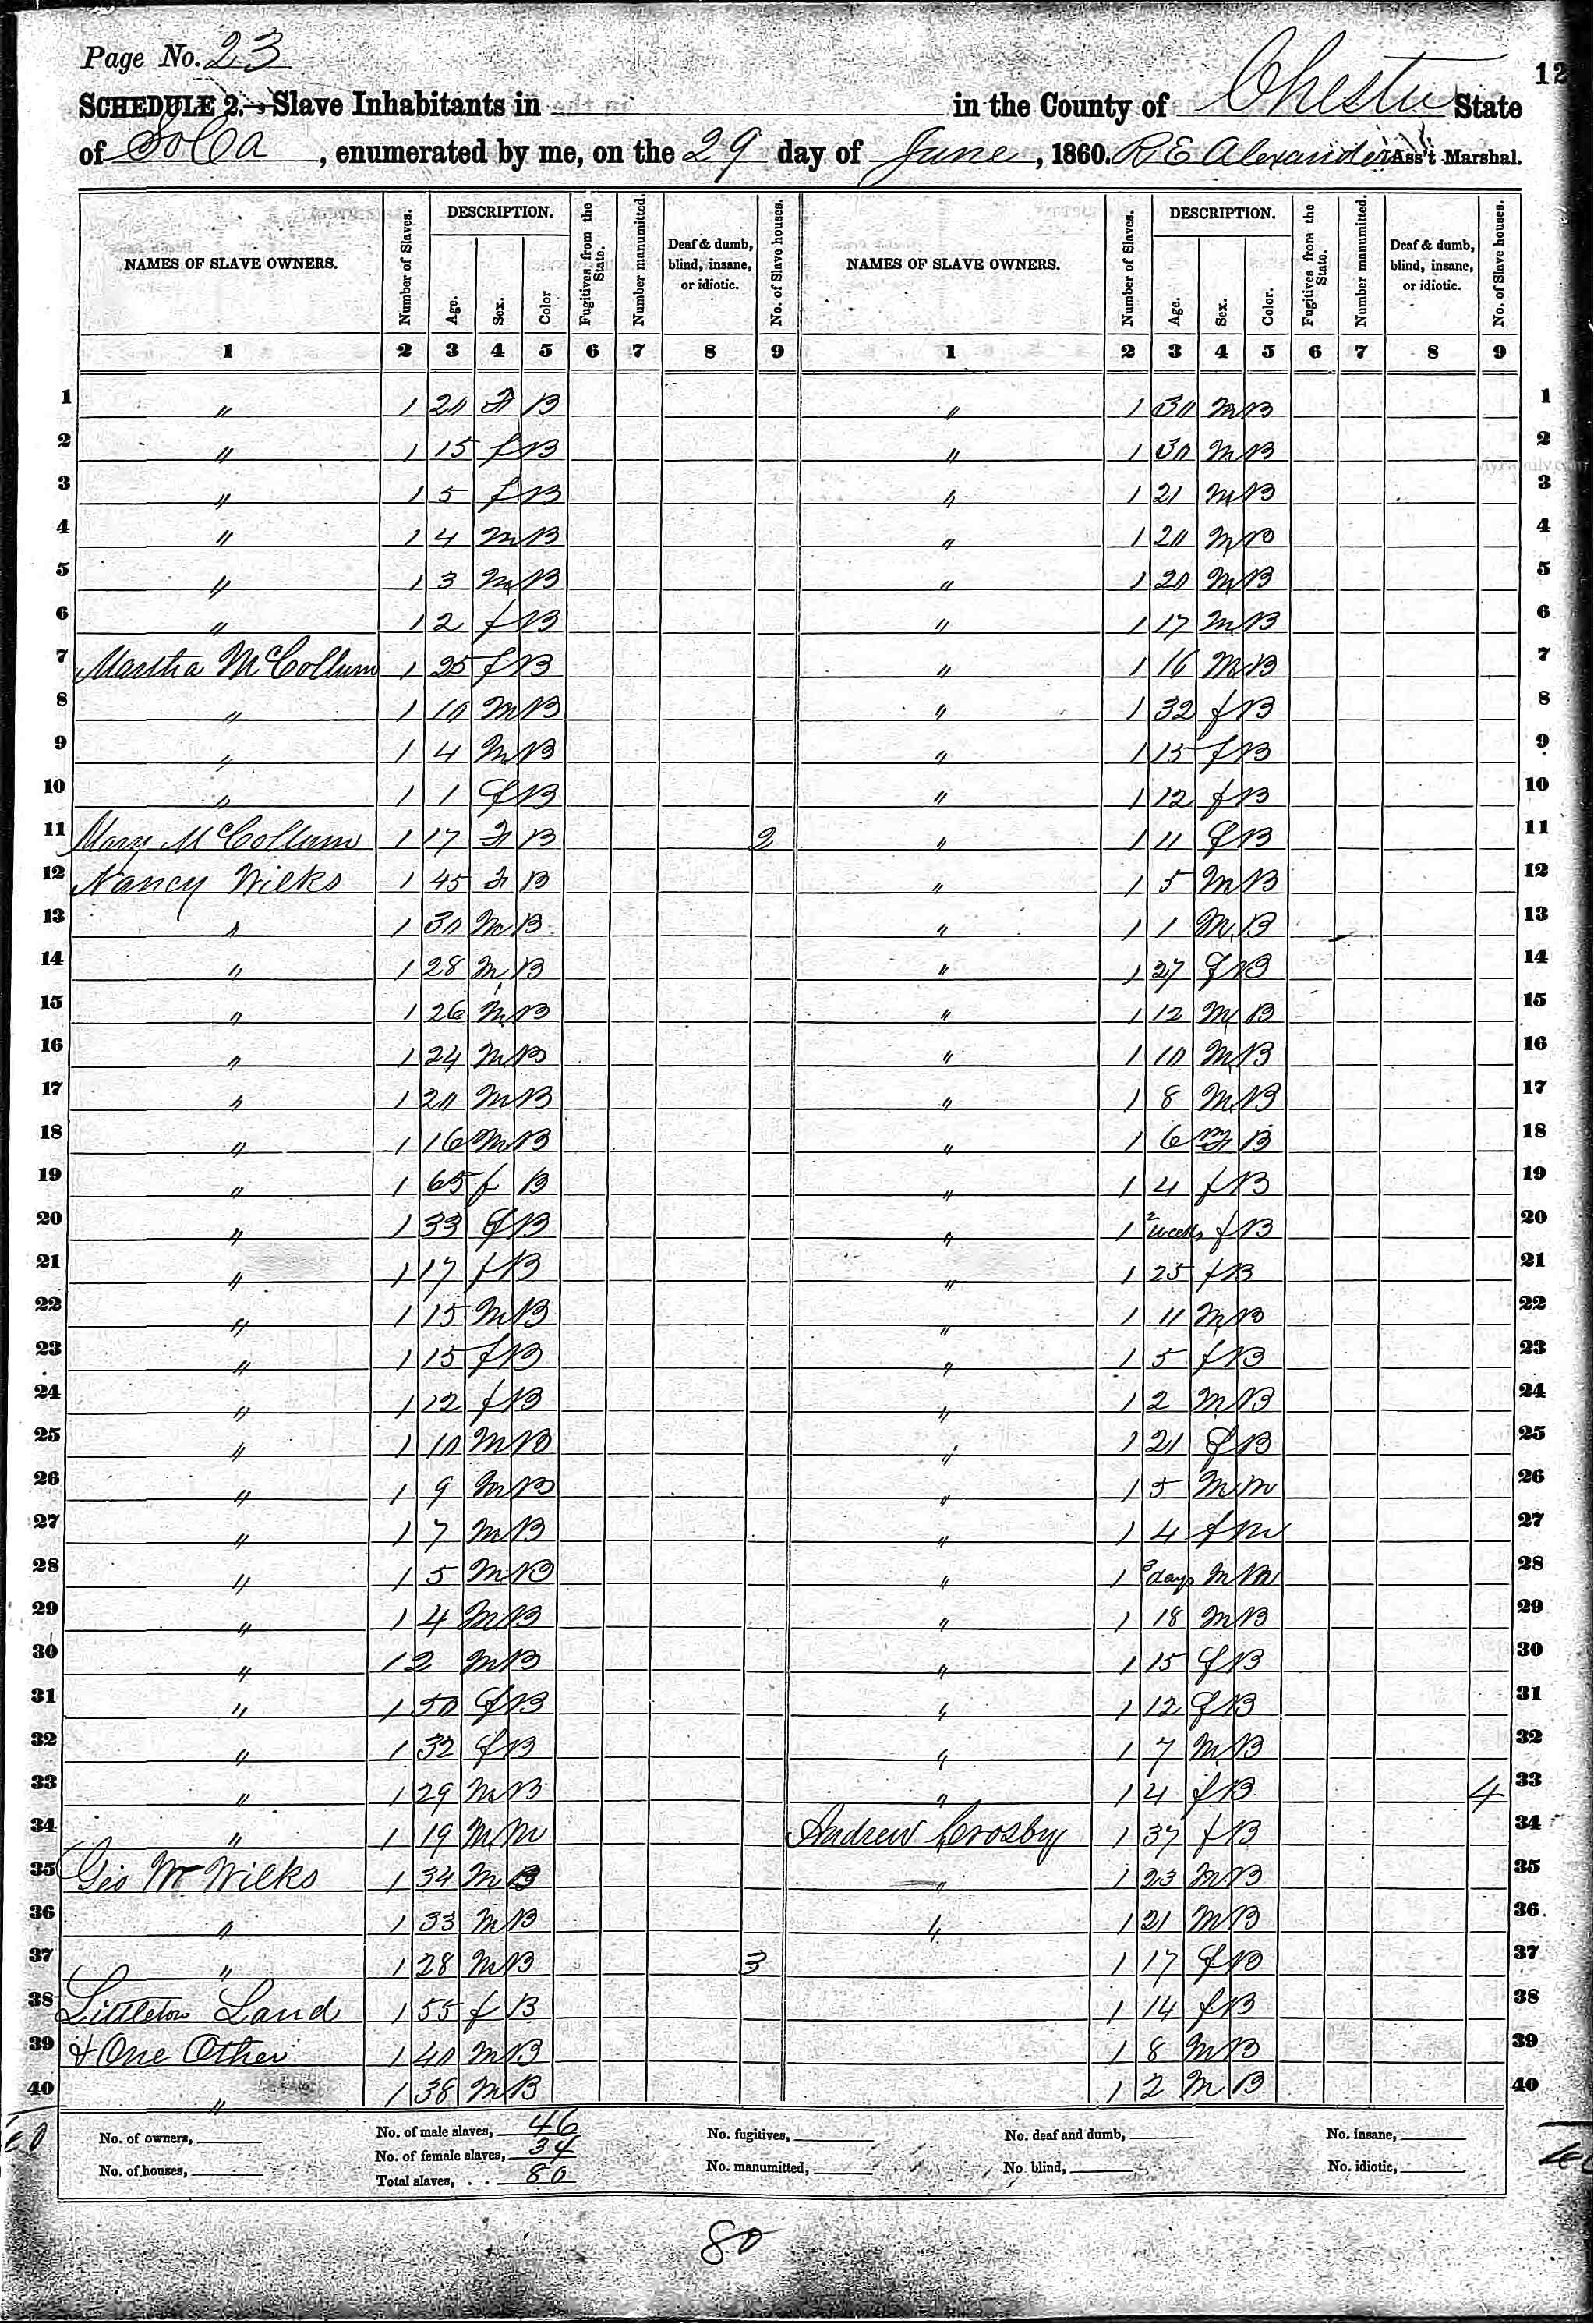 Page No. 23
12
SCHEDULE 2.—Slave Inhabitants in in the County of Chester State
of So Ca, enumerated by me, on the 29 day of June, 1860. R E Alexander Ass't Marshal.
NAMES OF SLAVE OWNERS. Number of Slaves. DESCRIPTION. Age. Sex. Color Fugitives from the State. Number manumitted. Deaf & dumb, blind, insane, or idiotic. No. of Slave houses. NAMES OF SLAVE OWNERS. Number of Slaves. DESCRIPTION. Age. Sex. Color. Fugitives from the State. Number manumitted. Deaf & dumb, blind, insane, or idiotic. No. of Slave houses.
1 2 3 4 5 6 7 8 9 1 2 3 4 5 6 7 8 9
1 " 1 20 F B " 1 30 M B 1
2 " 1 15 f B " 1 30 M B 2
3 " 1 5 f B " 1 21 M B 3
4 " 1 4 M B " 1 20 M B 4
5 " 1 3 M B " 1 20 M B 5
6 " 1 2 f B " 1 17 M B 6
7 Martha McCollum 1 25 f B " 1 16 M B 7
8 " 1 10 M B " 1 32 f B 8
9 " 1 4 M B " 1 15 f B 9
10 " 1 1 f B " 1 12 f B 10
11 Mary McCollum 1 17 F B 2 " 1 11 f B 11
12 Nancy Wilks 1 45 F B " 1 5 M B 12
13 " 1 30 M B " 1 1 M B 13
14 " 1 28 M B " 1 27 f B 14
15 " 1 26 M B " 1 12 M B 15
16 " 1 24 M B " 1 10 M B 16
17 " 1 20 M B " 1 8 M B 17
18 " 1 16 M B " 1 6 B 18
19 " 1 65 f B " 1 4 f B 19
20 " 1 33 f B " 1 2 weeks f B 20
21 " 1 17 f B " 1 25 f B 21
22 " 1 15 M B " 1 11 M B 22
23 " 1 15 f B " 1 5 f B 23
24 " 1 12 f B " 1 2 M B 24
25 " 1 10 M B " 1 21 f B 25
26 " 1 9 M B " 1 5 M M 26
27 " 1 7 M B " 1 4 f M 27
28 " 1 5 M B " 1 3 days M M 28
29 " 1 4 M B " 1 18 M B 29
30 " 1 2 M B " 1 15 f B 30
31 " 1 50 f B " 1 12 f B 31
32 " 1 32 f B " 1 7 M B 32
33 " 1 29 M B " 1 4 f B 4 33
34 " 1 19 M M Andrew Crosby 1 37 f B 34
35 Geo W Wilks 1 34 M B " 1 23 M B 35
36 " 1 33 M B " 1 21 M B 36
37 " 1 28 M B 3 1 17 f B 37
38 Littleton Land 1 55 f B 1 14 f B 38
39 & One Other 1 40 M B 1 8 M B 39
40 " 1 38 M B 1 2 M B 40
No. of owners, No. of male slaves, 46 No. fugitives, No. deaf and dumb, No. insane,
No. of houses, No. of female slaves, 34 No. manumitted, No. blind, No. idiotic,
Total slaves, 80
80